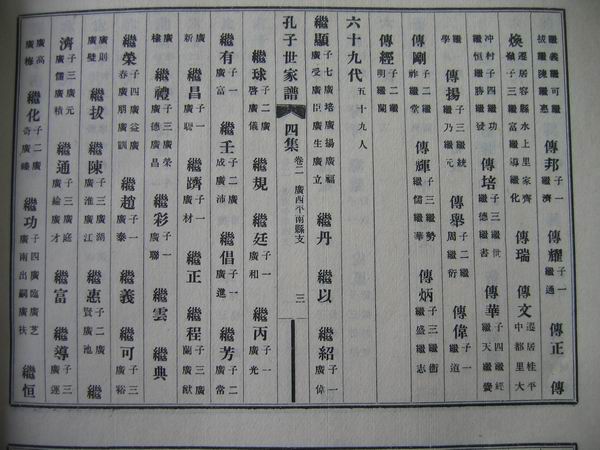 繼義繼可繼拔繼陳繼惠 傳邦 子一繼濟 傳耀 子一繼通 傳正 傳
煥 遷居容縣水上里家齊嶺子三繼富繼導繼化 傳瑞 傳文 遷居桂平中都里大
冲村子四繼功繼恒繼勝繼發 傳培 子三繼世繼德繼書 傳華 子四繼經繼天繼黌
繼學 傳揚 子三繼統繼乃繼元 傳舉 子二繼周繼衍 傳偉 子一繼道
傳剛 子二繼祚繼堂 傳輝 子三繼勢繼儒繼華 傳炳 子三繼衛繼盛繼志
傳經 子二繼明繼蘭
六十九代 五十九人
繼顯 子七廣培廣揚廣福廣受廣臣廣生廣立 繼丹 繼以 繼紹 子一廣偉
孔子世家譜 四集 卷二 廣西平南縣支 三
繼球 子二廣啓廣儀 繼規 繼廷 子一廣和 繼丙 子一廣光
繼有 子一廣富 繼壬 子二廣成廣沛 繼倡 子一廣進 繼芳 子二廣常
廣新 繼昌 子一廣聰 繼躋 子一廣材 繼正 繼程 子三廣蘭廣猷
廣棣 繼禮 子三廣榮廣德廣昌 繼彩 子一廣聯 繼雲 繼典
繼榮 子四廣益廣春廣朋廣訓 繼趙 子一廣泰 繼義 繼可 子三廣裕
廣則廣璧 繼拔 繼陳 子三廣湖廣淮廣江 繼惠 子二廣賢廣池 繼
濟 子三廣元廣儒廣積 繼通 子三廣庭廣綸廣才 繼富 繼導 子三廣運
廣高廣梅 繼化 子二廣奇廣 繼功 子四廣臨廣芝廣南出嗣廣扶 繼恒